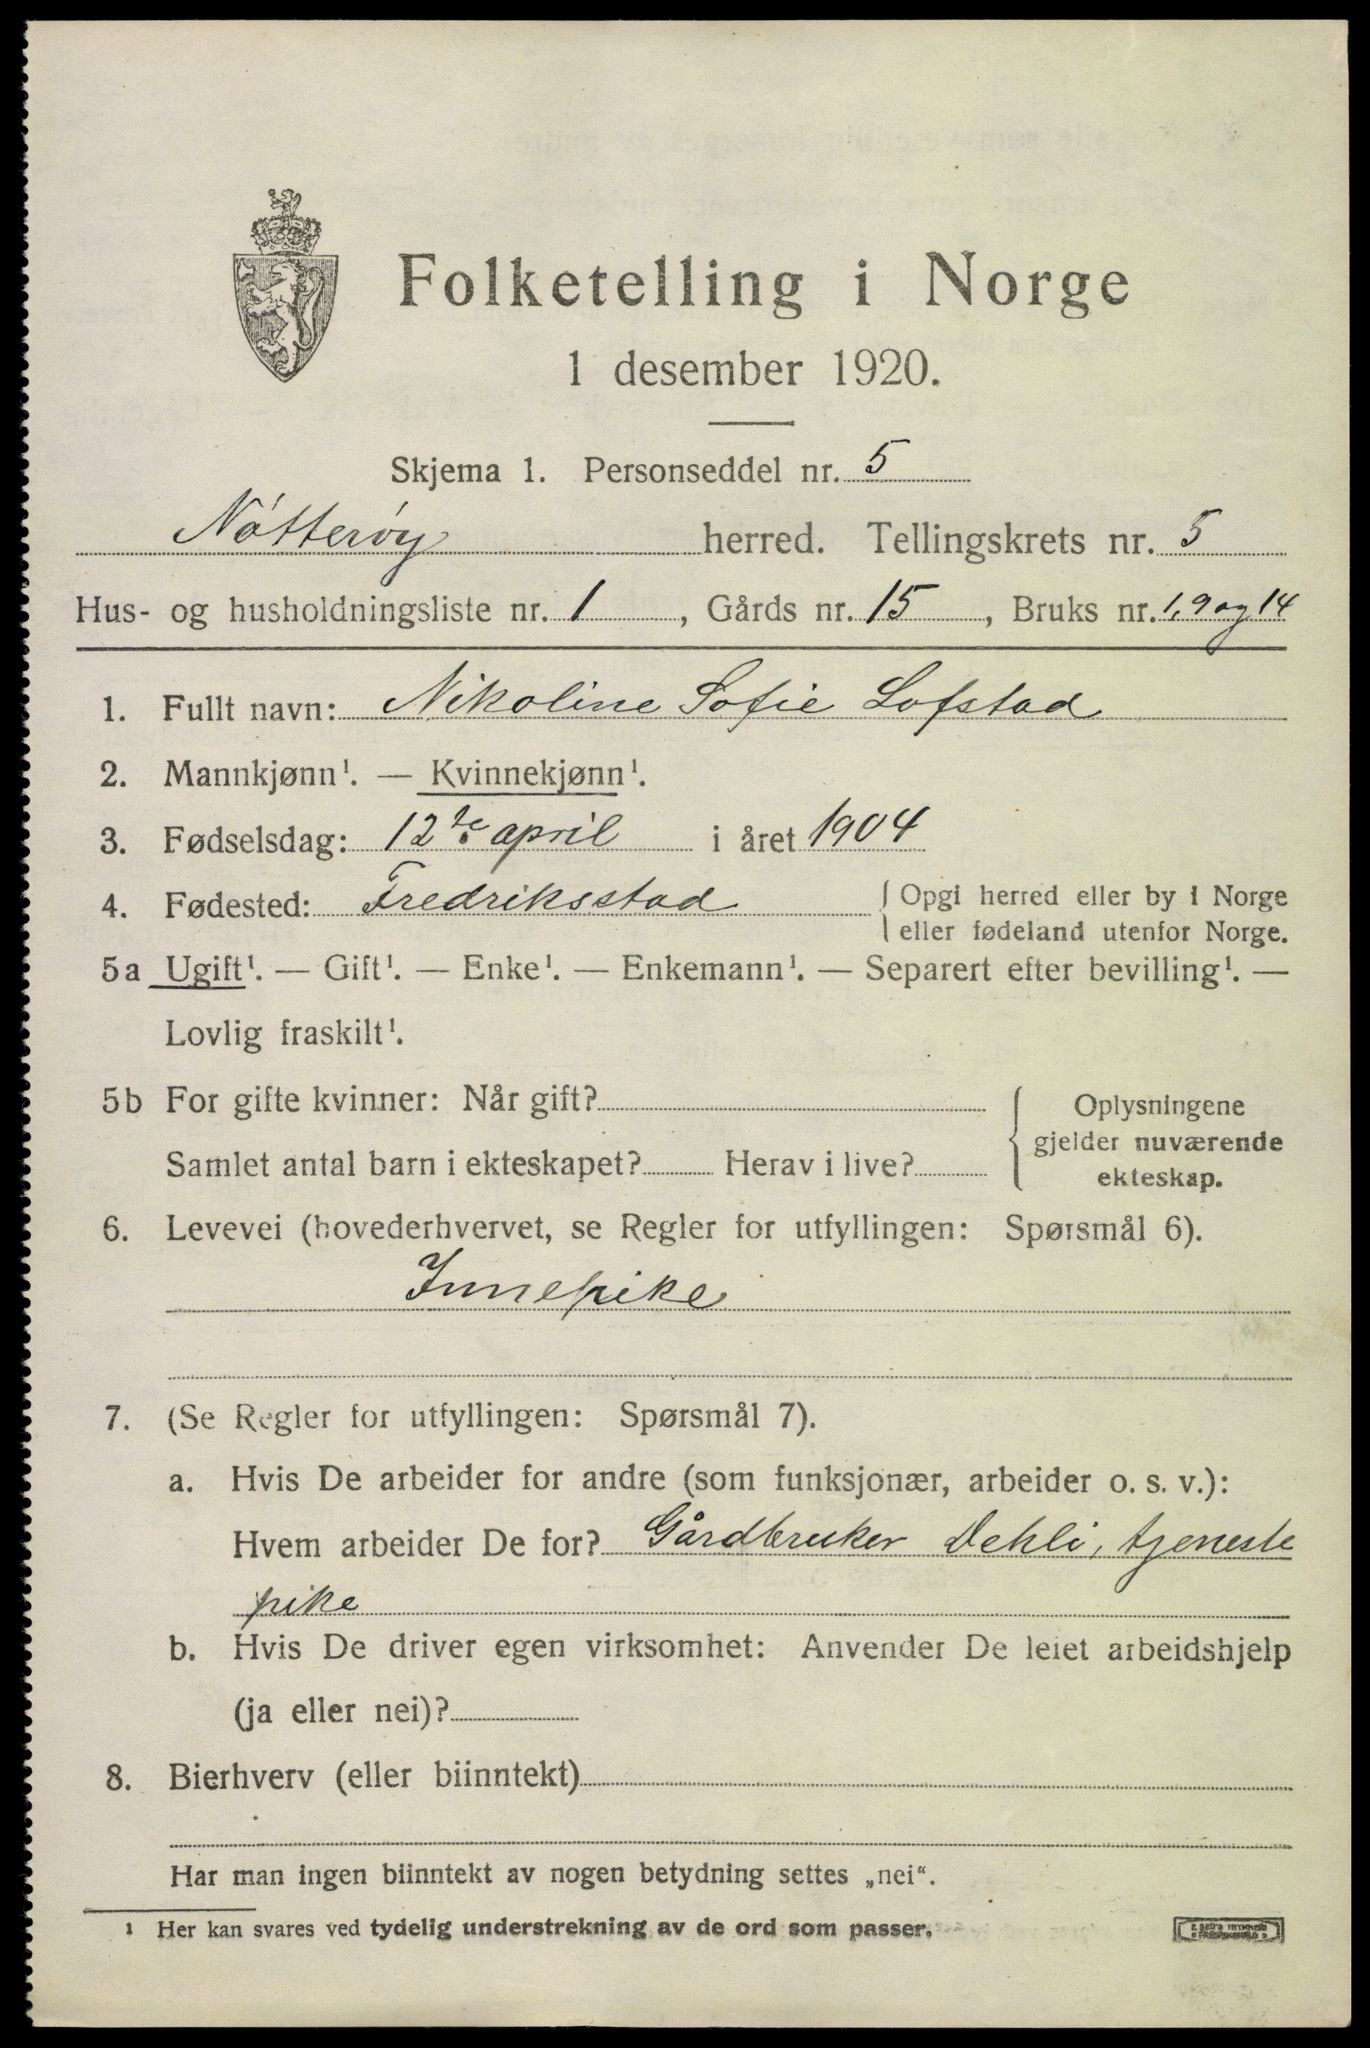 Folketelling i Norge
1 desember 1920.
Skjema 1. Personseddel nr. 5
Nøtterøy herred. Tellingskrets nr. 5
Hus- og husholdningsliste nr. 1, Gårds nr. 15, Bruks nr. 1, 9 og 14
1. Fullt navn: Nikoline Sofie Lofstad
2. Mannkjønn¹. — Kvinnekjønn¹.
3. Fødselsdag: 12te april i året 1904
4. Fødested: Fredriksstad { Opgi herred eller by i Norge
eller fødeland utenfor Norge.
5a Ugift¹. — Gift¹. — Enke¹. — Enkemann¹. — Separert efter bevilling¹. —
Lovlig fraskilt¹.
5b For gifte kvinner: Når gift? { Oplysningene
gjelder nuværende
Samlet antal barn i ekteskapet? Herav i live?
ekteskap.
6. Levevei (hovederhvervet, se Regler for utfyllingen: Spørsmål 6).
Innepike
7. (Se Regler for utfyllingen: Spørsmål 7).
a. Hvis De arbeider for andre (som funksjonær, arbeider o. s. v.):
Hvem arbeider De for? Gårdbruker Dehli, tjeneste
pike
b. Hvis De driver egen virksomhet: Anvender De leiet arbeidshjelp
(ja eller nei)?
8. Bierhverv (eller biinntekt)
Har man ingen biinntekt av nogen betydning settes „nei“.
¹ Her kan svares ved tydelig understrekning av de ord som passer.